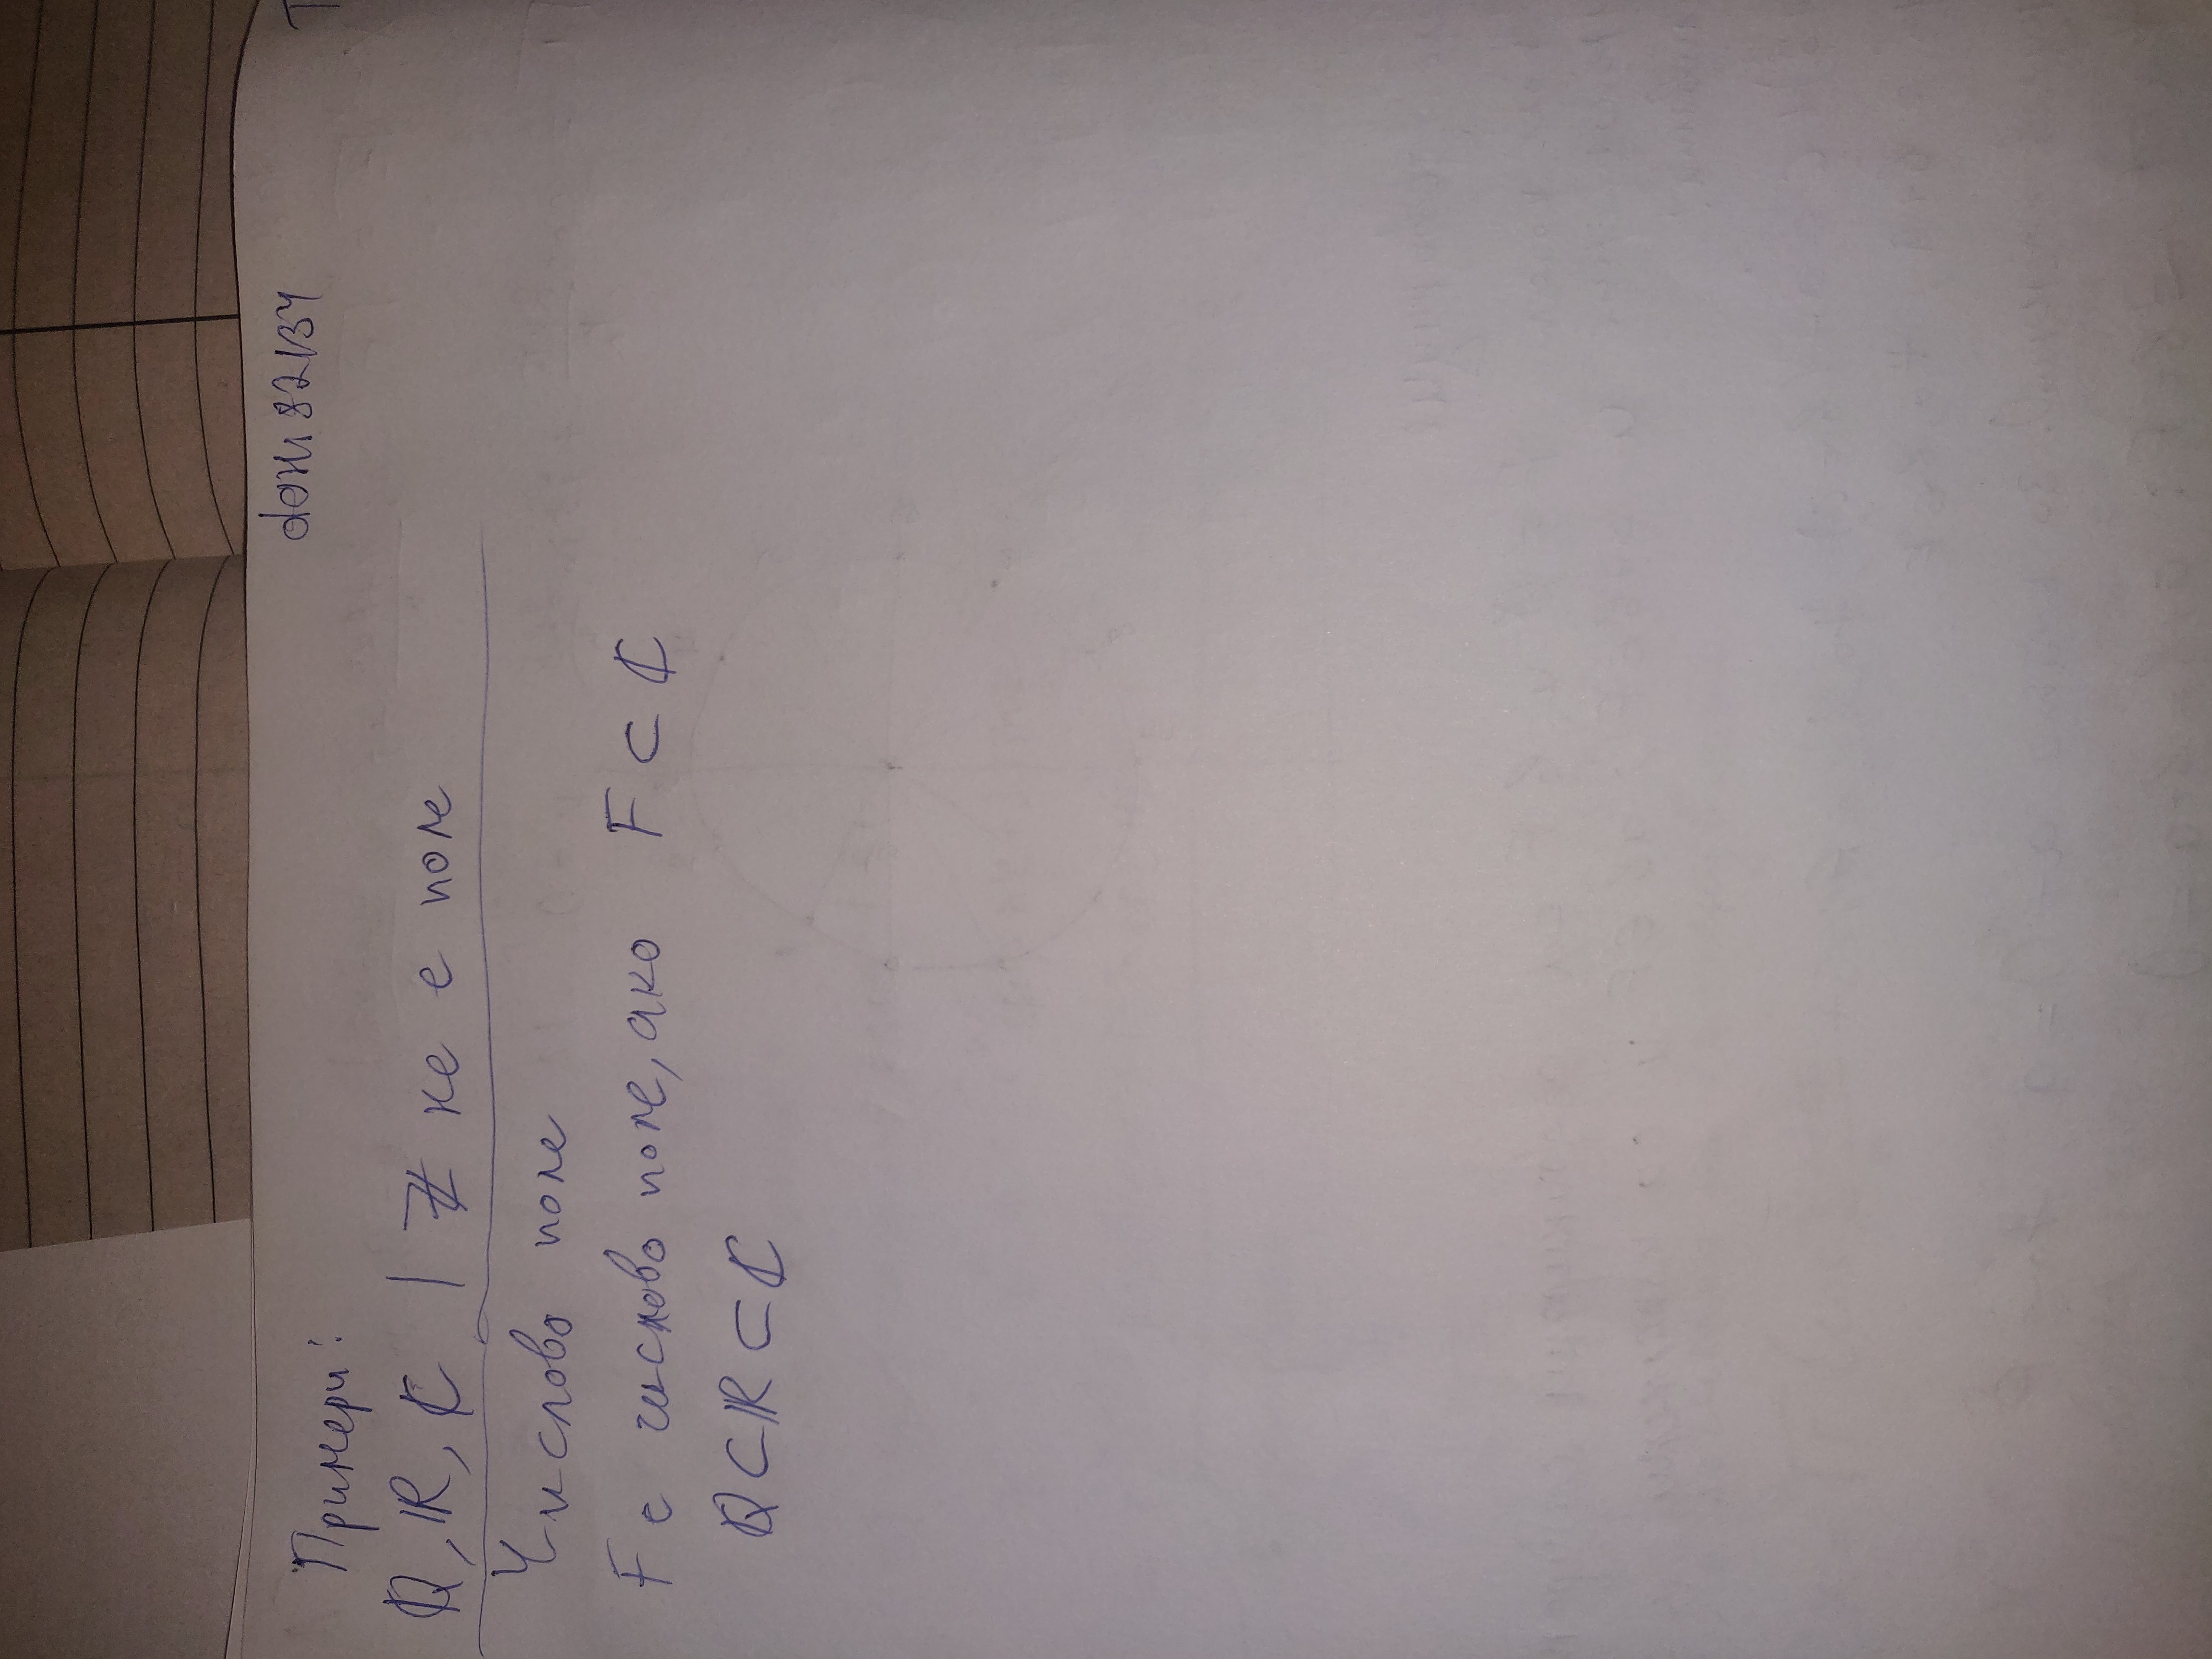 doni82134
Примери:
ℚ, ℝ, ℂ | ℤ не е поле
Числово поле
F е числово поле, ако F ⊂ ℂ
ℚ ⊂ ℝ ⊂ ℂ